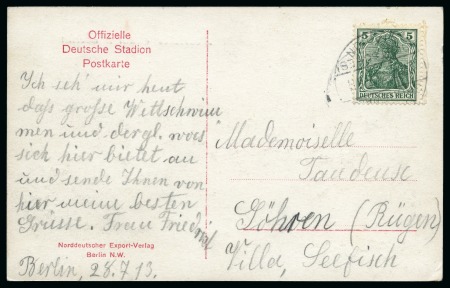 Offizielle
Deutsche Stadion
Postkarte
Ich seh' mir heut
das große Wettschwim
men und dergl. was
sich hier bietet an
und sende Ihnen von
hier meine besten
Grüsse. Frau Fried
Norddeutscher Export-Verlag
Berlin N.W.
Berlin, 28.7.13.
5 5
DEUTSCHES REICH
Mademoiselle
Göhren (Rügen)
Villa, Seefisch